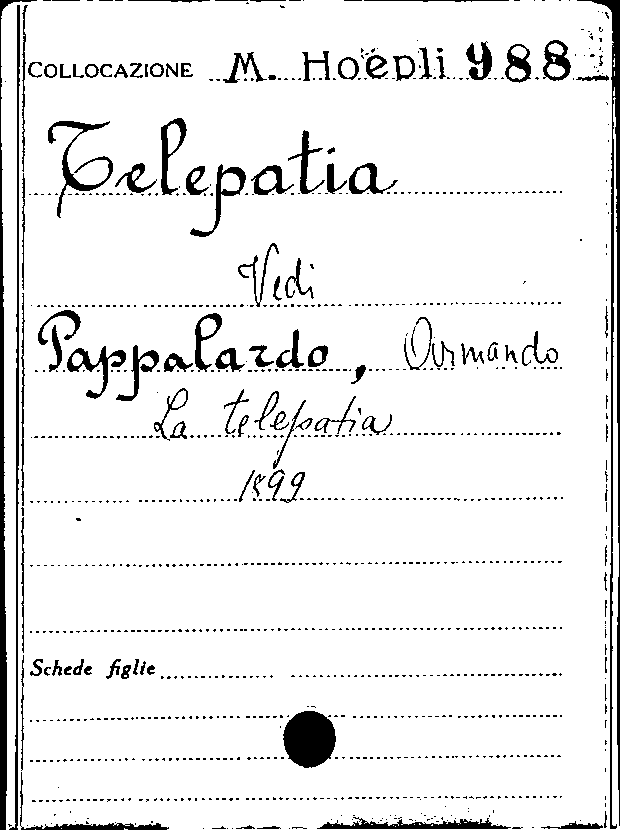 COLLOCAZIONE M. Hoepli 988
Telepatia
Vedi
Pappalardo, Armando
La telepatia
1899
Schede figlie